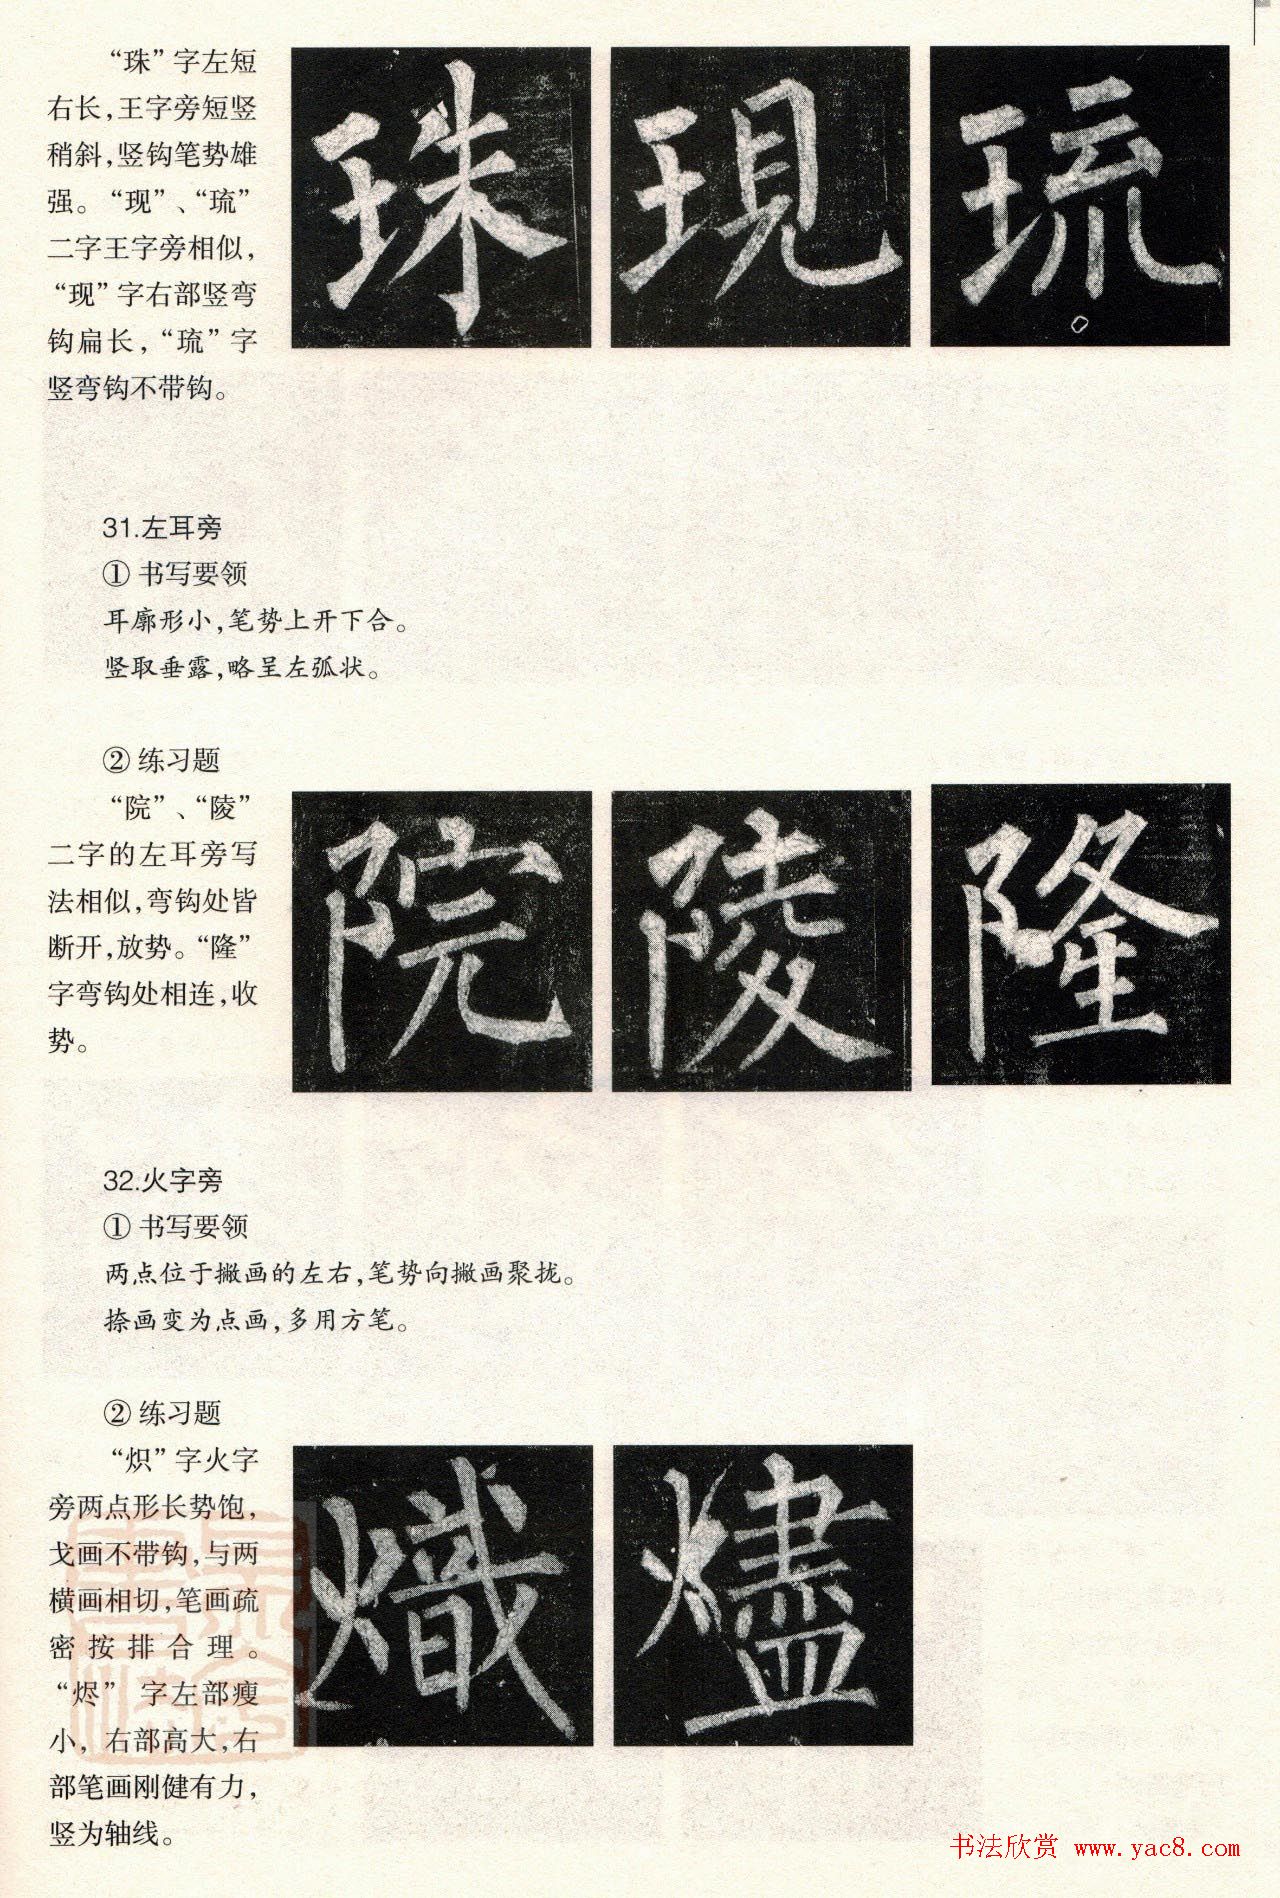 “珠”字左短
右长，王字旁短竖
稍斜，竖钩笔势雄
强。“现”、“琉”
二字王字旁相似，
“现”字右部竖弯
钩扁长，“琉”字
竖弯钩不带钩。
珠 現 琉
31.左耳旁
① 书写要领
耳廓形小，笔势上开下合。
竖取垂露，略呈左弧状。
② 练习题
“院”、“陵”
二字的左耳旁写
法相似，弯钩处皆
断开，放势。“隆”
字弯钩处相连，收
势。
院 陵 隆
32.火字旁
① 书写要领
两点位于撇画的左右，笔势向撇画聚拢。
捺画变为点画，多用方笔。
② 练习题
“炽”字火字
旁两点形长势饱，
戈画不带钩，与两
横画相切，笔画疏
密按排合理。
“烬”字左部瘦
小，右部高大，右
部笔画刚健有力，
竖为轴线。
熾 燼
书法欣赏 www.yac8.com